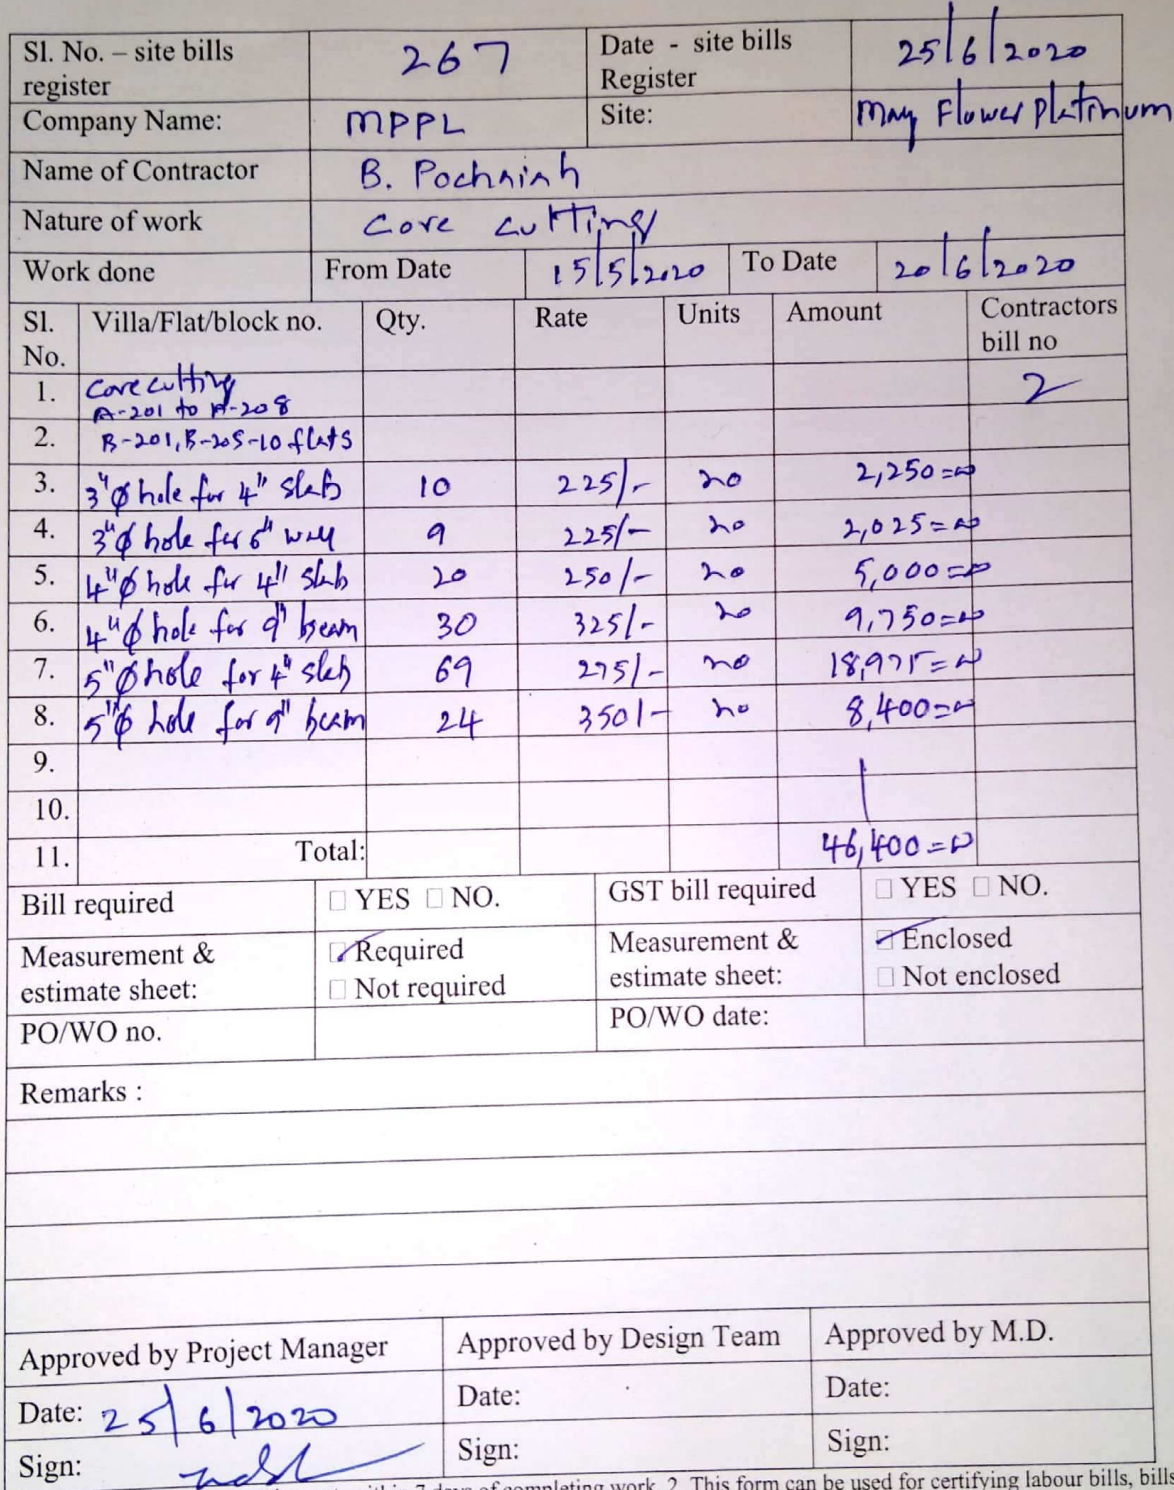 Sl. No. – site bills register 267 Date - site bills Register 25/6/2020
Company Name: MPPL Site: May Flower Platinum
Name of Contractor B. Pochaiah
Nature of work Core cutting
Work done From Date 15/5/2020 To Date 20/6/2020
Sl. No. Villa/Flat/block no. Qty. Rate Units Amount Contractors bill no
1. Core cutting A-201 to A-208 2
2. B-201, B-205-10 flats
3. 3"φ hole for 4" slab 10 225/- no 2,250=00
4. 3"φ hole for 6" wall 9 225/- no 2,025=00
5. 4"φ hole for 4" slab 20 250/- no 5,000=00
6. 4"φ hole for 9" beam 30 325/- no 9,750=00
7. 5"φ hole for 4" slab 69 275/- no 18,975=00
8. 5"φ hole for 9" beam 24 350/- no 8,400=00
9.
10.
11. Total: 46,400=00
Bill required □ YES □ NO. GST bill required □ YES □ NO.
Measurement & estimate sheet: ☑ Required □ Not required Measurement & estimate sheet: ☑ Enclosed □ Not enclosed
PO/WO no. PO/WO date:
Remarks :
Approved by Project Manager Approved by Design Team Approved by M.D.
Date: 25/6/2020 Date: Date:
Sign: Sign: Sign:
7 days of completing work. 2. This form can be used for certifying labour bills, bills